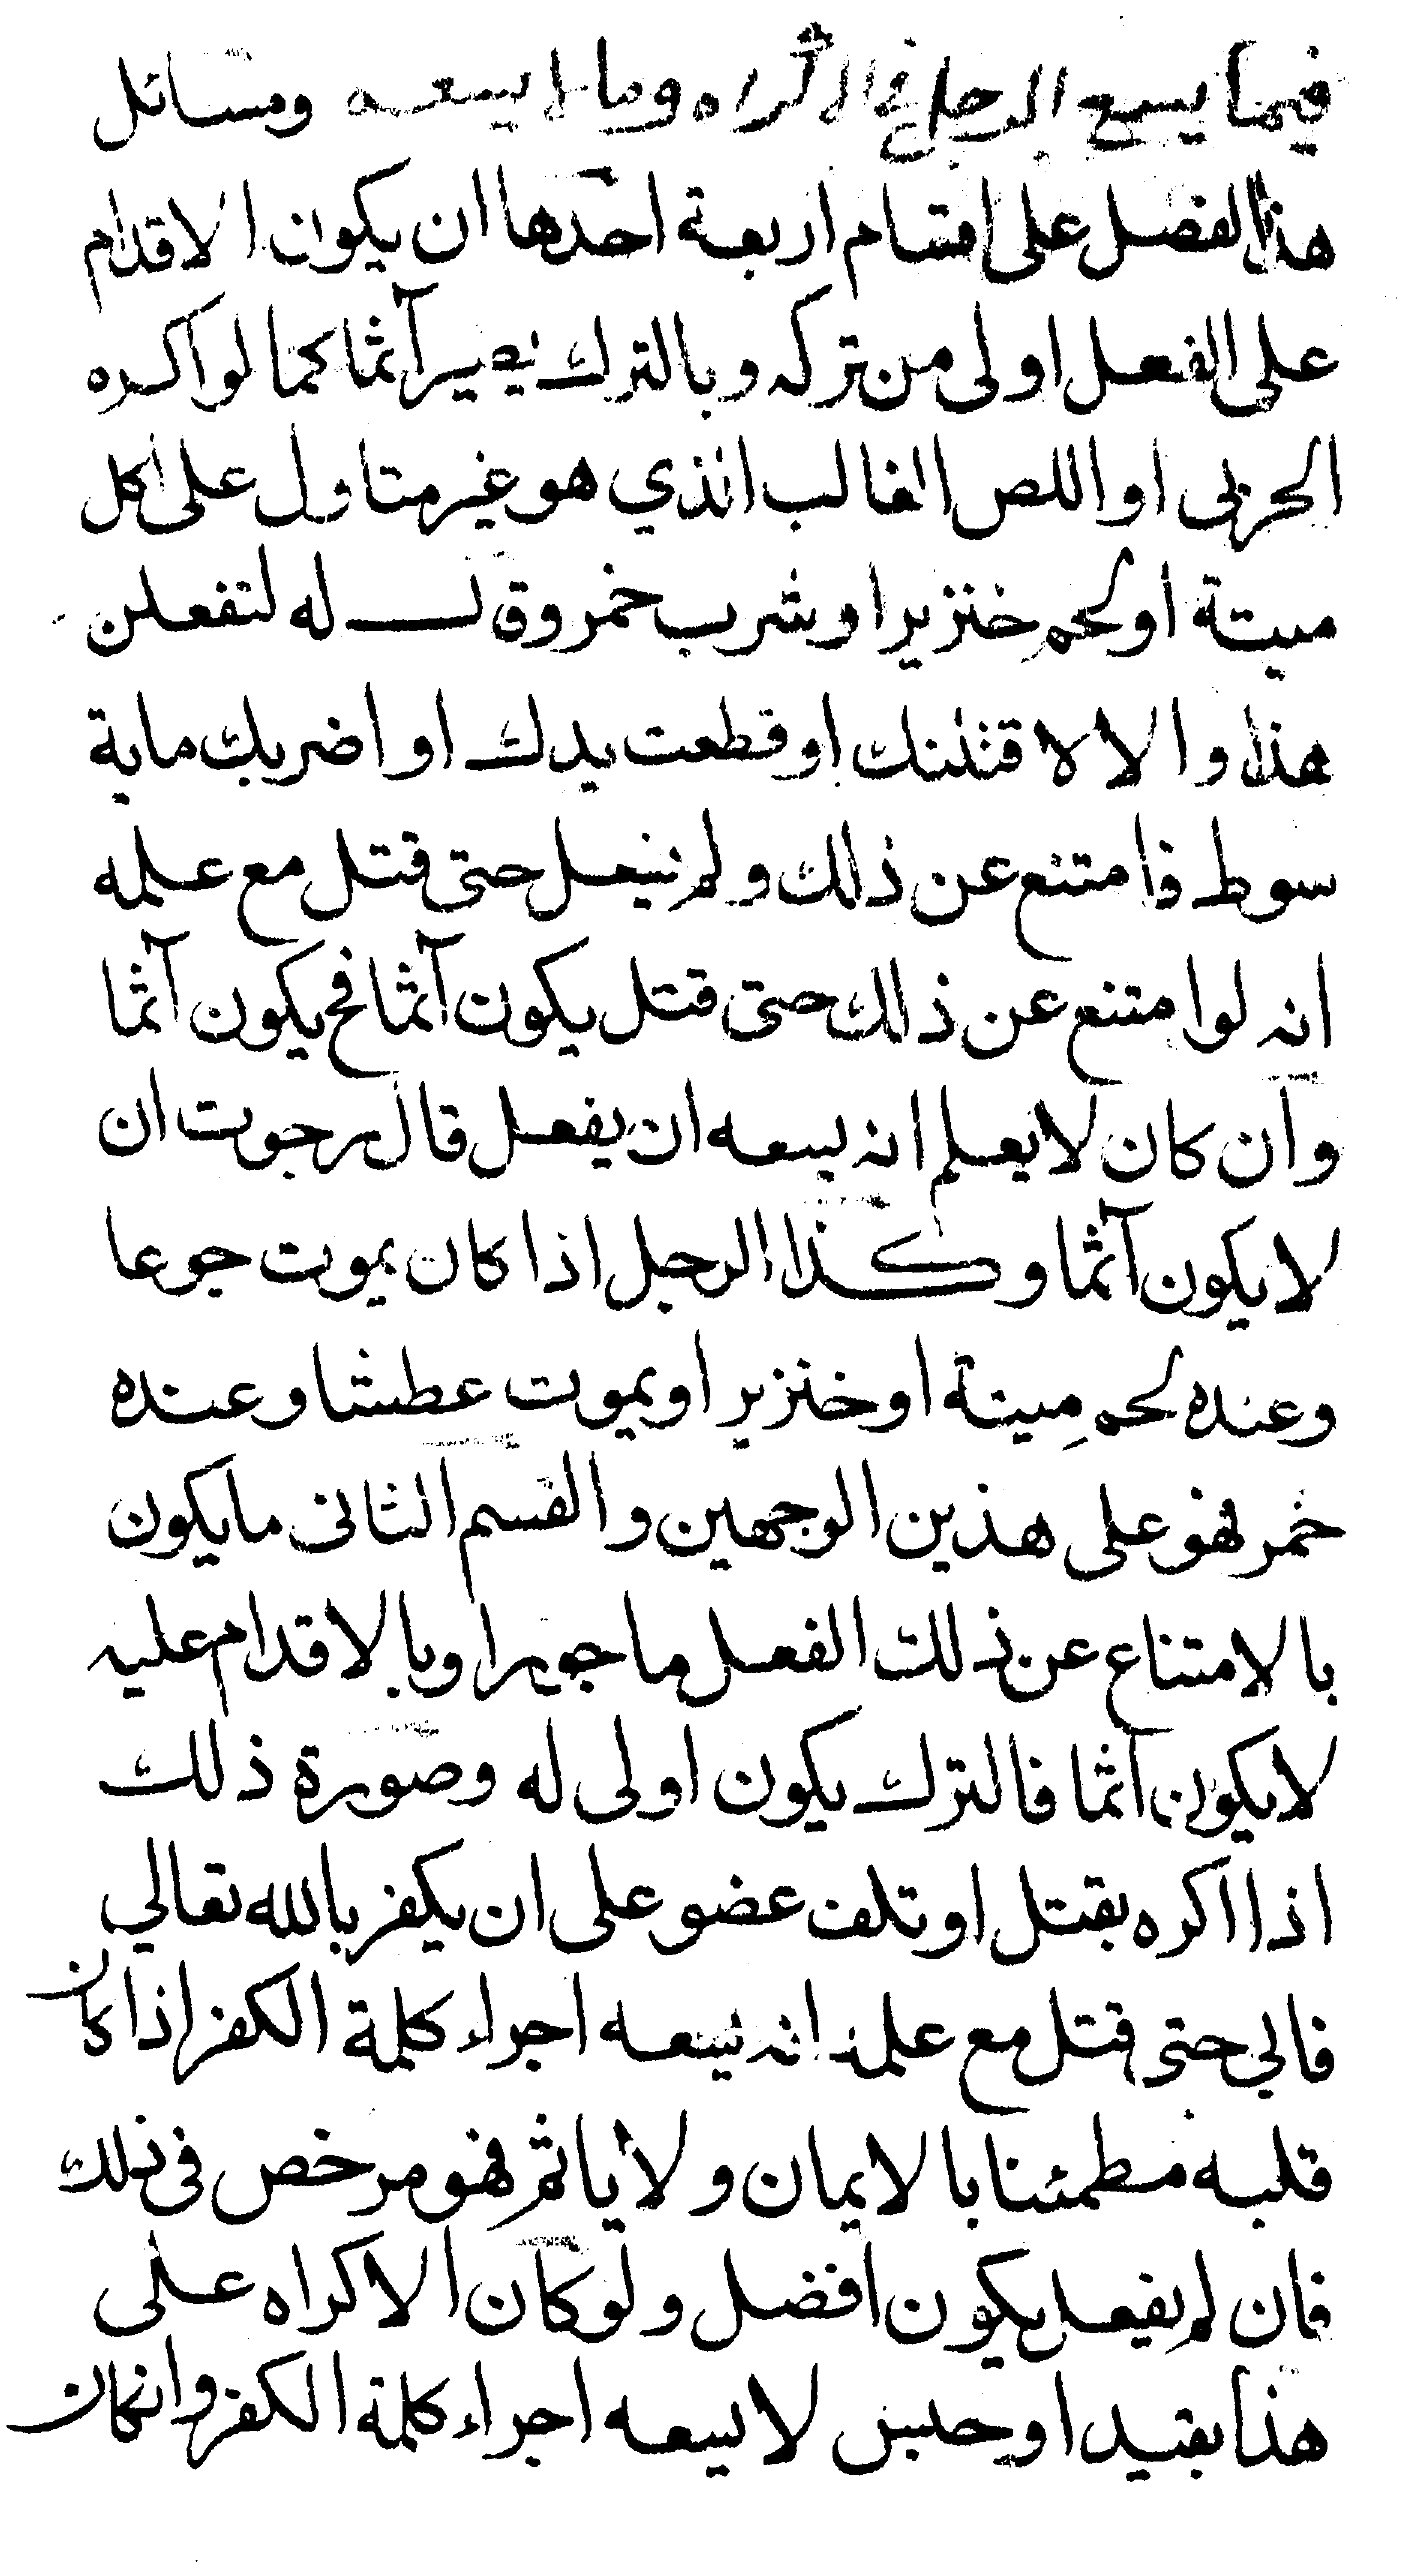 فيما يسع الرجل في الاكراه وما لا يسعه ومسائل
هذا الفصل على اقسام اربعة احدها ان يكون الاقدام
على الفعل اولى من تركه وبالترك يصير آثما كما لو اكره
الحربى او اللص الغالب الذي هو غير متاول على اكل
ميتة او لحم خنزير او شرب خمر وقال له لتفعلن
هذا والا لاقتلنك او قطعت يدك او اضربك ماية
سوط فامتنع عن ذلك ولم يفعل حتى قتل مع علمه
انه لو امتنع عن ذلك حتى قتل يكون آثما فح يكون آثما
وان كان لا يعلم انه يسعه ان يفعل قال رجوت ان
لا يكون آثما وكذا الرجل اذا كان يموت جوعا
وعنده لحم ميتة او خنزير او يموت عطشا وعنده
خمر فهو على هذين الوجهين والقسم الثانى ما يكون
بالامتناع عن ذلك الفعل ماجورا وبالاقدام عليه
لا يكون آثما فالترك يكون اولى له وصورة ذلك
اذا اكره بقتل او تلف عضو على ان يكفر بالله تعالي
فابي حتى قتل مع علمه انه يسعه اجراء كلمة الكفر اذا كان
قلبه مطمئنا بالايمان ولا ياثم فهو مرخص فى ذلك
فان لم يفعل يكون افضل ولو كان الاكراه على
هذا بقيد او حبس لا يسعه اجراء كلمة الكفر وان كان